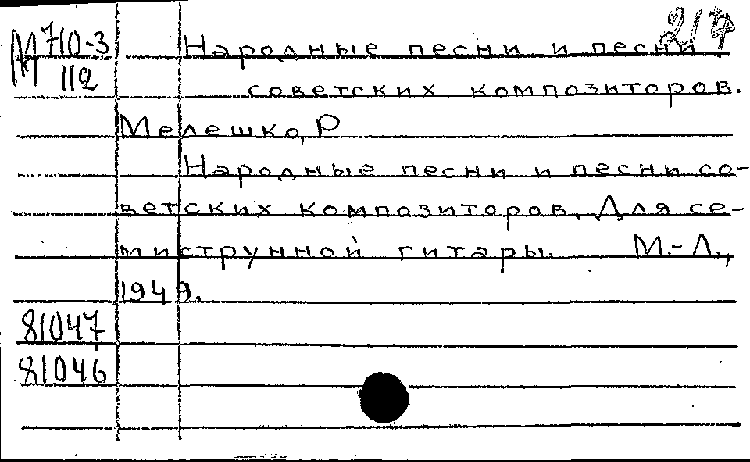 М 710-3
112
Народные песни и песни
советских композиторов.
Мелешко, Р
Народные песни и песни со-
ветских композиторов. Для се-
миструнной гитары. М.-Л.,
1949.
81047
81046